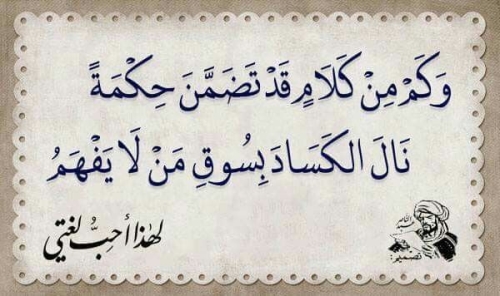 وَكَمْ مِنْ كَلَامٍ قَدْ تَضَمَّنَ حِكْمَةً
نَالَ الكَسَادَ بِسُوقِ مَنْ لَا يَفْهَمُ
لهٰذا أحبُّ لغتي
تصميم: